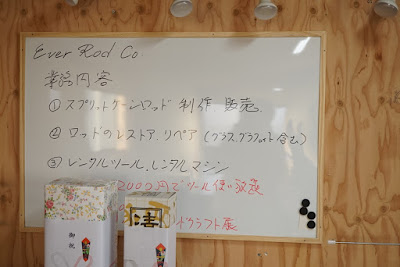 Ever Rod Co
業務内容
① スプリットケーンロッド 制作 販売.
② ロッドのレストア.リペア (グラス.グラファイト含む)
③ レンタルツール.レンタルマシン
2000円でツール使い放題
クラフト展
御祝